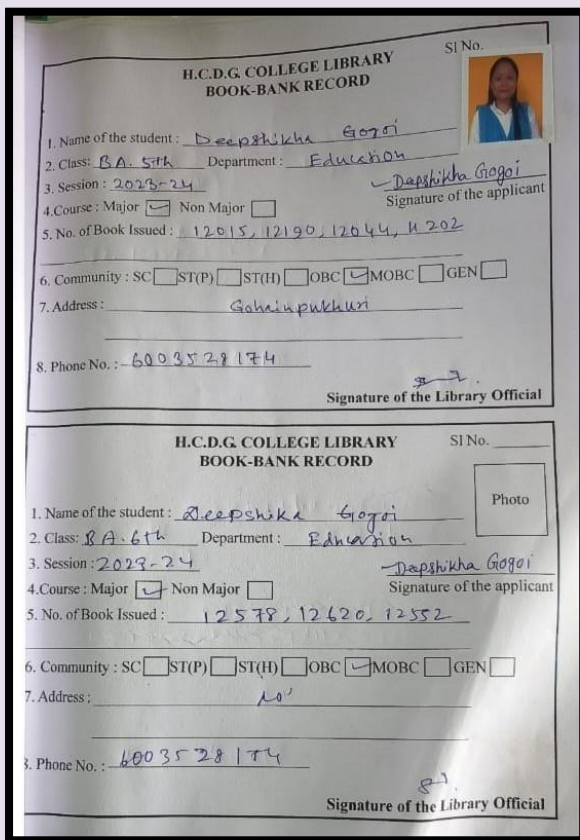 H.C.D.G. COLLEGE LIBRARY
BOOK-BANK RECORD
Sl No.
1. Name of the student : Deepshikha Gogoi
2. Class: BA. 5th Department : Education
3. Session : 2023-24
Depshikha Gogoi
Signature of the applicant
4.Course : Major Non Major
5. No. of Book Issued : 12015, 12190, 12044, 11202
6. Community : SC ST(P) ST(H) OBC MOBC GEN
7. Address : Gohainpukhuri
8. Phone No. : 6003528174
Signature of the Library Official
H.C.D.G. COLLEGE LIBRARY
BOOK-BANK RECORD
Sl No.
Photo
1. Name of the student : Deepshika Gogoi
2. Class: BA. 6th Department : Education
3. Session : 2023-24
Depshikha Gogoi
Signature of the applicant
4.Course : Major Non Major
5. No. of Book Issued : 12578, 12620, 12552
6. Community : SC ST(P) ST(H) OBC MOBC GEN
7. Address :
8. Phone No. : 6003528174
Signature of the Library Official